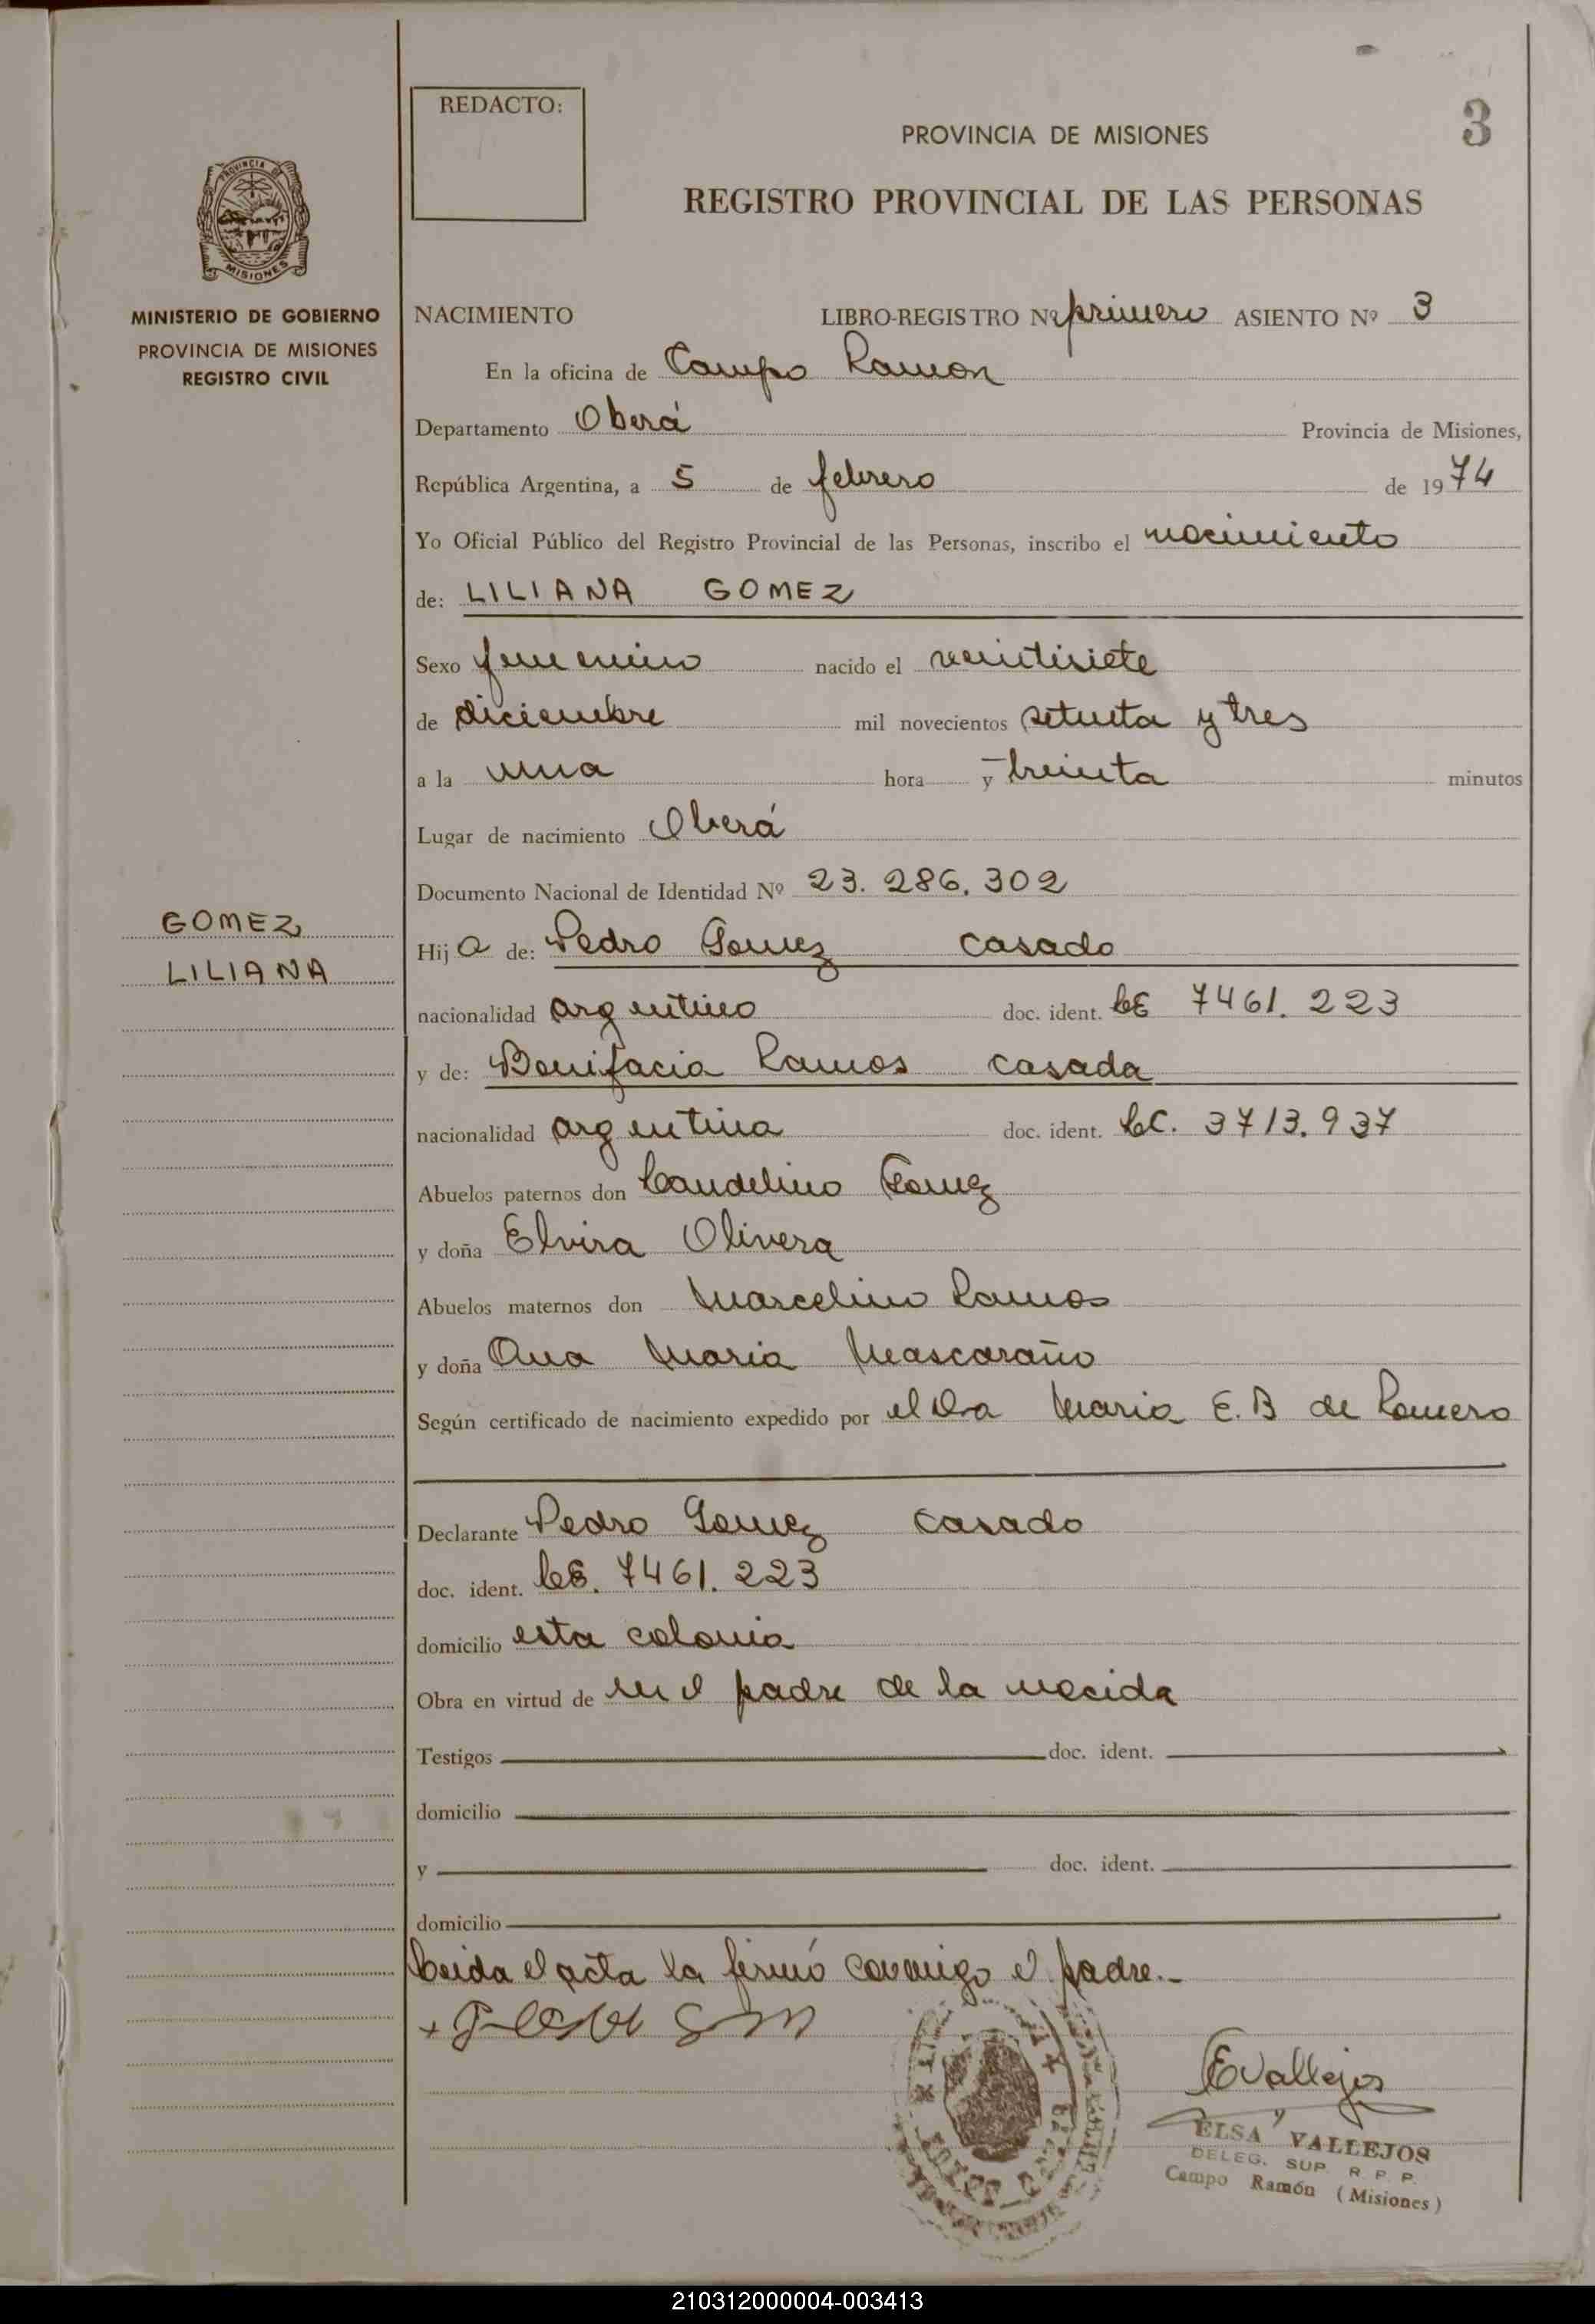 REDACTO:
3
PROVINCIA DE MISIONES
REGISTRO PROVINCIAL DE LAS PERSONAS
PROVINCIA DE
MISIONES
MINISTERIO DE GOBIERNO
PROVINCIA DE MISIONES
REGISTRO CIVIL
NACIMIENTO LIBRO-REGISTRO Nº primero ASIENTO Nº 3
En la oficina de Campo Ramon
Departamento Oberá Provincia de Misiones,
República Argentina, a 5 de febrero de 1974
Yo Oficial Público del Registro Provincial de las Personas, inscribo el nacimiento
de: LILIANA GOMEZ
Sexo femenino nacido el veintisiete
de diciembre mil novecientos setenta y tres
a la una hora y treinta minutos
Lugar de nacimiento Oberá
Documento Nacional de Identidad Nº 23.286.302
GOMEZ
LILIANA
Hija de: Pedro Gomez casado
nacionalidad argentino doc. ident. LE 7461.223
y de: Bonifacia Ramos casada
nacionalidad argentina doc. ident. LC. 3713.937
Abuelos paternos don Candelino Gomez
y doña Elvira Olivera
Abuelos maternos don Marcelino Ramos
y doña Ana Maria Mascaraño
Según certificado de nacimiento expedido por el Dra Maria E.B de Romero
Declarante Pedro Gomez casado
doc. ident. LE. 7461.223
domicilio esta colonia
Obra en virtud de ser el padre de la nacida
Testigos doc. ident.
domicilio
y doc. ident.
domicilio
Leida el acta la firmó conmigo el padre.-
EVallejos
ELSA VALLEJOS
DELEG. SUP. R. P. P.
Campo Ramón (Misiones)
210312000004-003413